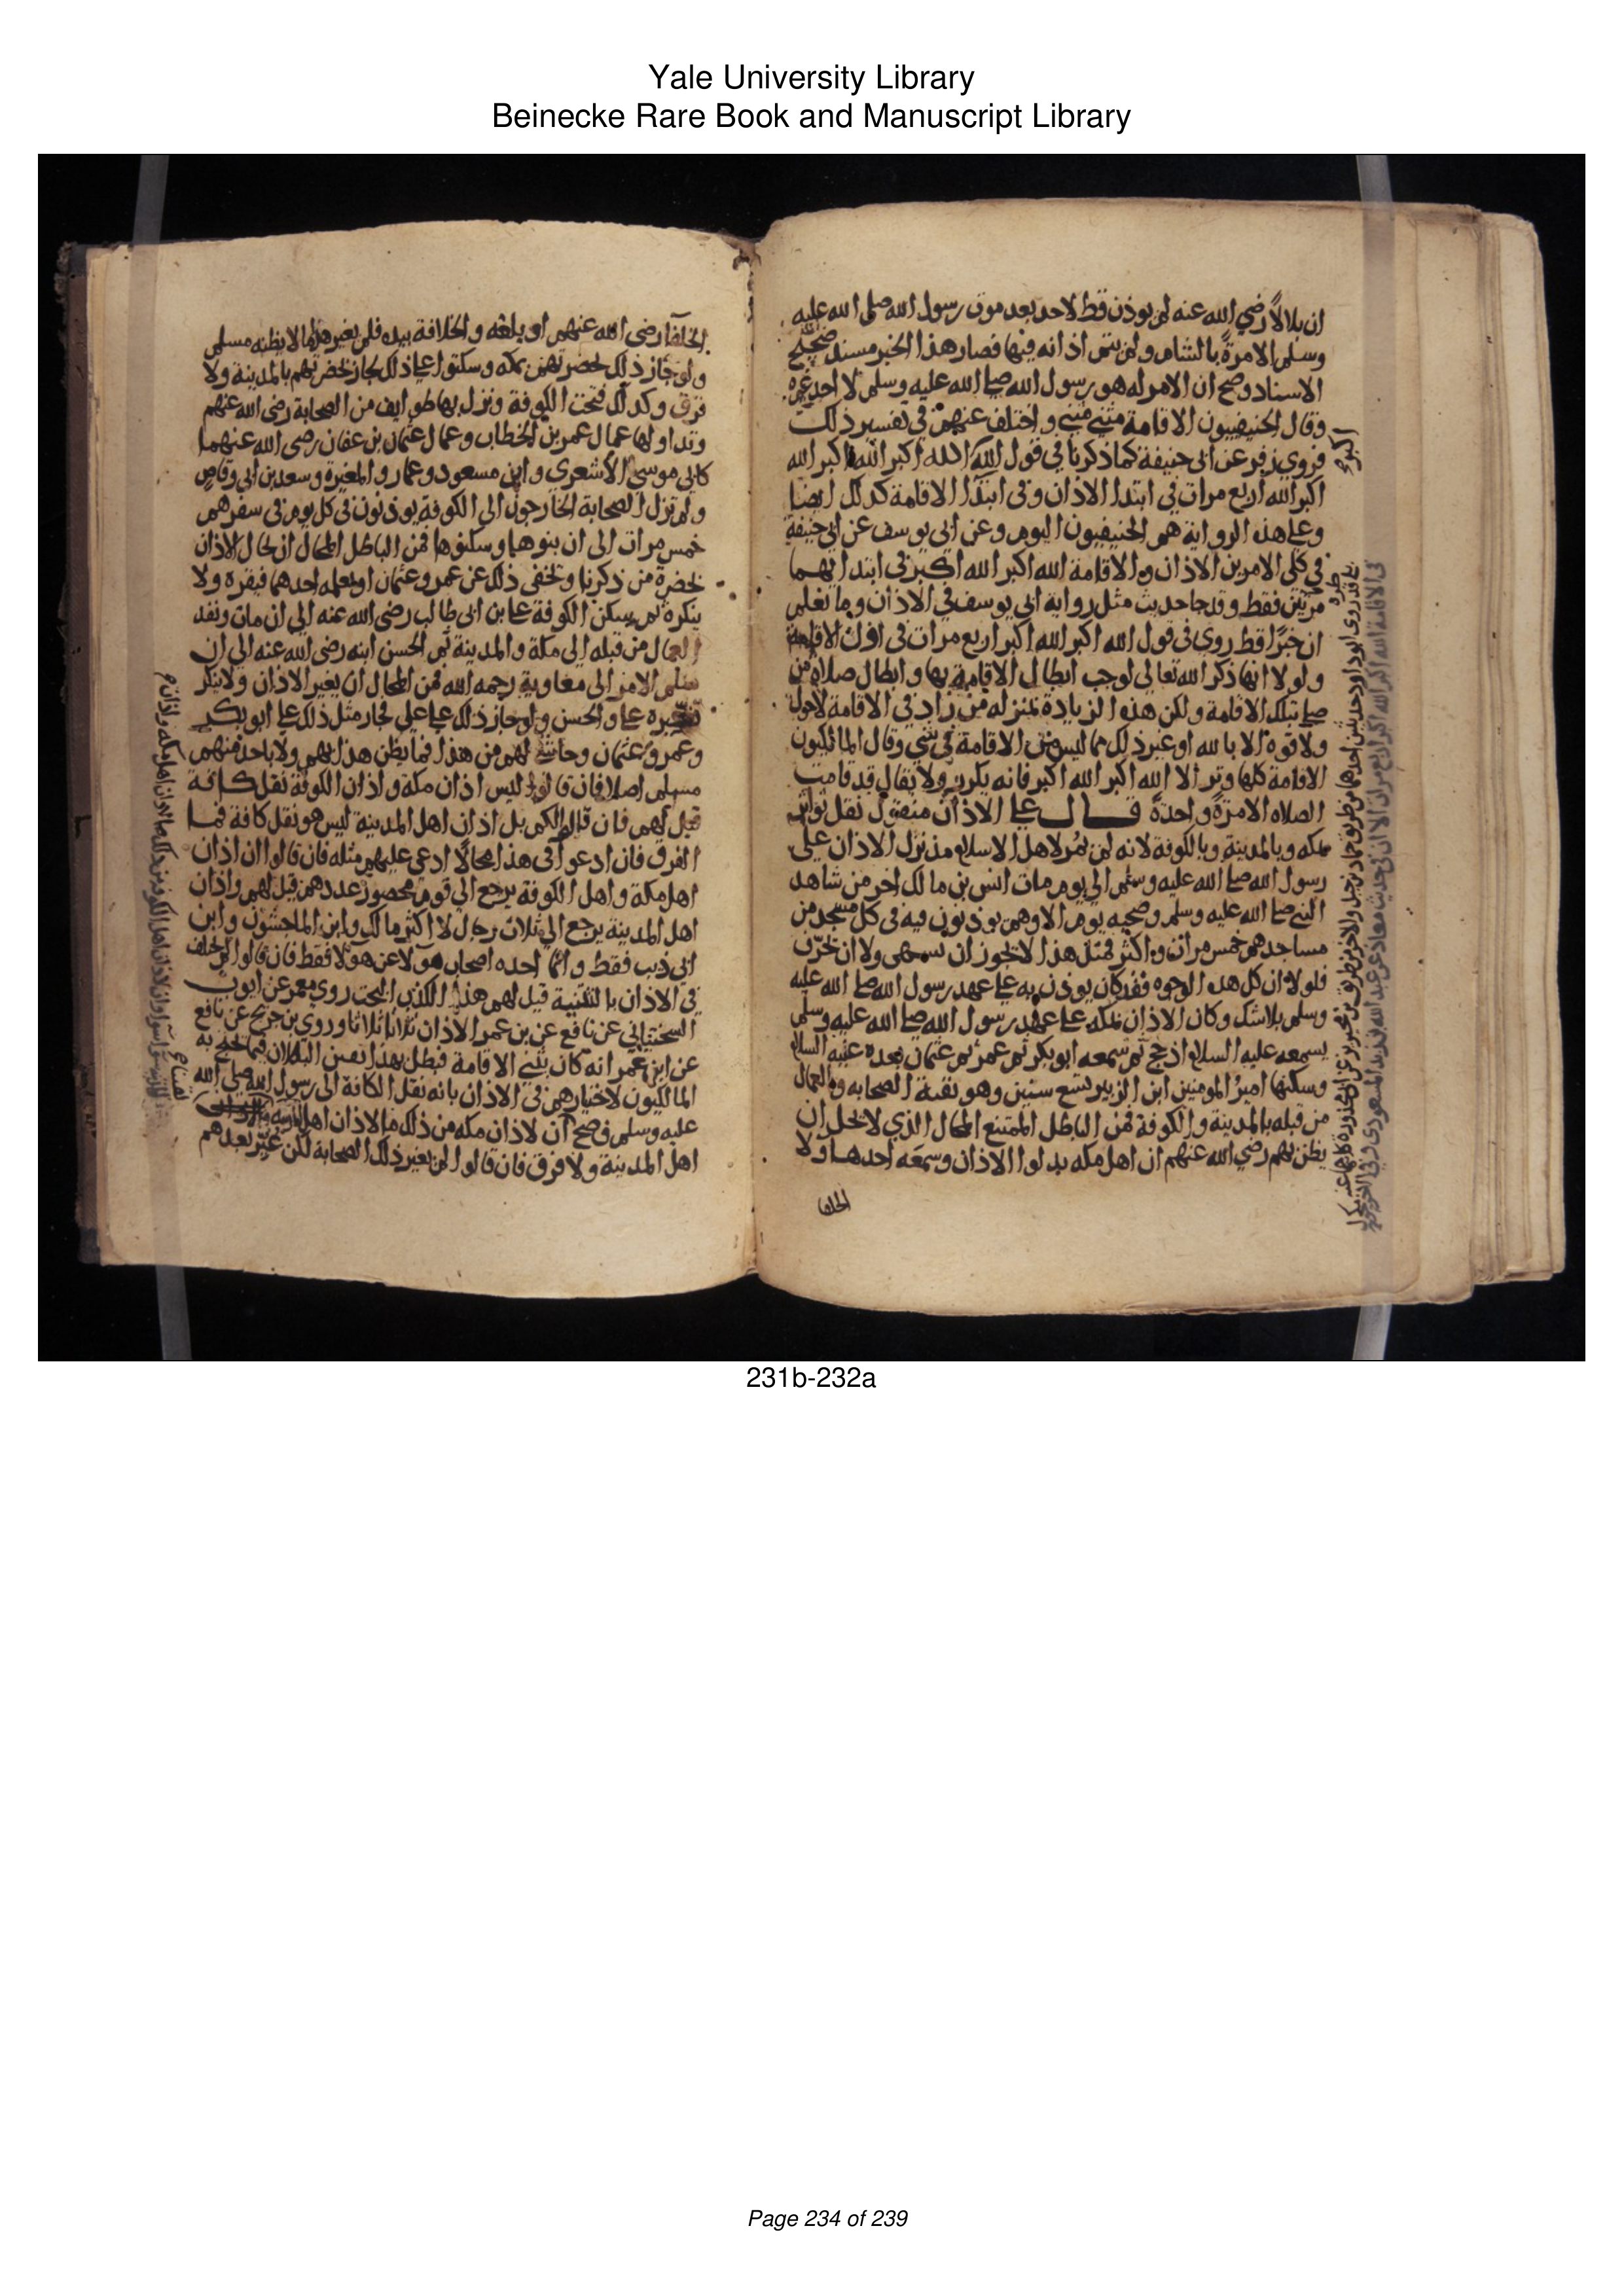 Yale University Library
Beinecke Rare Book and Manuscript Library
ان بلالاً رضي الله عنه لم يوذن قط لاحد بعد موت رسول الله صلى الله عليه
وسلم الا مرةً بالشام ولم يتم اذانه فيها فصار هذا الخبر مسند صحيح
الاسناد وصح ان الامر له هو رسول الله صلى الله عليه وسلم لا احد غيره
وقال الحنيفيون الاقامة مثنى مثنى واختلف عنهم في تفسير ذلك
فروي زفر عن ابي حنيفة كما ذكرنا في قول الله اكبر الله اكبر الله اكبر الله
اكبر الله اربع مرات في ابتدا الاذان وفي ابتدا الاقامة كذلك ايضا
وعلى هذه الرواية هم الحنيفيون اليوم وعن ابي يوسف عن ابي حنيفة
في كلى الامرين الاذان والاقامة الله اكبر الله اكبر في ابتدايهما
مرتين فقط وقد جا حديث مثل رواية ابي يوسف في الاذان وما نعلم
ان خبرًا قط روي في قول الله اكبر الله اكبر اربع مرات في اول الاقامة
ولولا انها ذكر الله تعالى لوجب ابطال الاقامة بها وابطال صلاة من
صلى بتلك الاقامة ولكن هذه الزيادة بمنزله من زاد في الاقامة لا حول
ولا قوة الا بالله او غير ذلك مما ليس من الاقامة في شي وقال المالكيون
الاقامة كلها وتر الا الله اكبر الله اكبر فانه يكرر ولا يقال قد قامت
الصلاه الا مرةً واحدةً قال علي الاذان منقول نقل تواتر
بمكه وبالمدينة وبالكوفة لانه لم يمر لاهل الاسلام مذ نزل الاذان على
رسول الله صلى الله عليه وسلم الي يوم مات انس بن مالك اخر من شاهد
النبي صلى الله عليه وسلم وصحبه يوم الا وهم يوذنون فيه في كل مسجد من
مساجدهم خمس مرات واكثر فمثل هذا لا يجوز ان ينسى ولا ان يحرّف
فلولا ان كل هذه الوجوه قد كان يوذن به على عهد رسول الله صلى الله عليه
وسلم بلا شك وكان الاذان بمكه على عهد رسول الله صلى الله عليه وسلم
يسمعه عليه السلام اذ حج ثم سمعه ابو بكر ثم عمر ثم عثمان بعده عليه السلام
وسكنها امير المومنين ابن الزبير تسع سنين وهو بقية الصحابه والعمال
من قبله بالمدينة والكوفة فمن الباطل الممتنع المحال الذي لا يحل ان
يظن بهم رضي الله عنهم ان اهل مكه بدلوا الاذان وسمعه احدهم اولا
الخلفا
الخلفآ رضى الله عنهم او بلغه والخلافة بيده فلم يغير هذا ما لا يظنه مسلم
ولو جاز ذلك لحضرتهم بمكه وسكتوا على ذلك لجاز لحضرتهم بالمدينة ولا
فرق وكذلك فتحت الكوفة ونزل بها طوايف من الصحابة رضى الله عنهم
وتداولها عمال عمر بن الخطاب وعمال عثمان بن عفان رضى الله عنهما
كابي موسى الاشعرى وابن مسعود وعمار والمغيرة وسعد بن ابي وقاص
ولم تزل الصحابة الخارجون الى الكوفة يوذنون في كل يوم في سفرهم
خمس مرات الى ان بنوها وسكنوها فمن الباطل المحال ان يحال الاذان
بحضرة من ذكرنا ويخفى ذلك عن عمر وعثمان او يعلمه احدهما فيقره ولا
ينكره ثم سكن الكوفة على بن ابى طالب رضى الله عنه الي ان مات ونفذ
العمال من قبله إلى مكة والمدينة ثم الحسن ابنه رضى الله عنه الى ان
سلم الامر الى معاوية رحمه الله فمن المحال ان يغير الاذان ولا ينكر
تغييره على والحسن ولو جاز ذلك على علي لجاز مثل ذلك على ابو بكر
وعمر وعثمان وحاشى لهم من هذا فما يظن هذا بهم ولا باحد منهم
مسلم اصلا فان قالوا ليس اذان مكة واذان الكوفة نقل كافة
قيل لهم فان قالوا لكم بل اذان اهل المدينة ليس هو نقل كافة فما
الفرق فان ادعوا في هذا محالًا ادعي عليهم مثله فان قالوا ان اذان
اهل مكة واهل الكوفة يرجع الي قوم محصور عددهم قيل لهم واذان
اهل المدينة يرجع الي ثلاث رجال لا اكثر مالك وابن الماجشون وابن
ابي ذيب فقط وانما اخذه اصحاب هولا عن هولا فقط فان قالوا لم يختلف
في الاذان بالتثنية قيل لهم هذا الكذب البحت روي معمر عن ايوب
السختياني عن نافع عن بن عمر الاذان ثلاثا ثلاثا وروي بن جريج عن نافع
عن ابن عمر انه كان يثنى الاقامة فبطل بهذا نفس البطلان فيما احتج به
المالكيون لاختيارهم في الاذان بانه نقل الكافة الى رسول الله صلى الله
عليه وسلم فصح ان لاذان مكه من ذلك ما لاذان اهل
اهل المدينة ولا فرق فان قالوا لم يغير ذلك الصحابة لكن غير بعدهم
231b-232a
Page 234 of 239